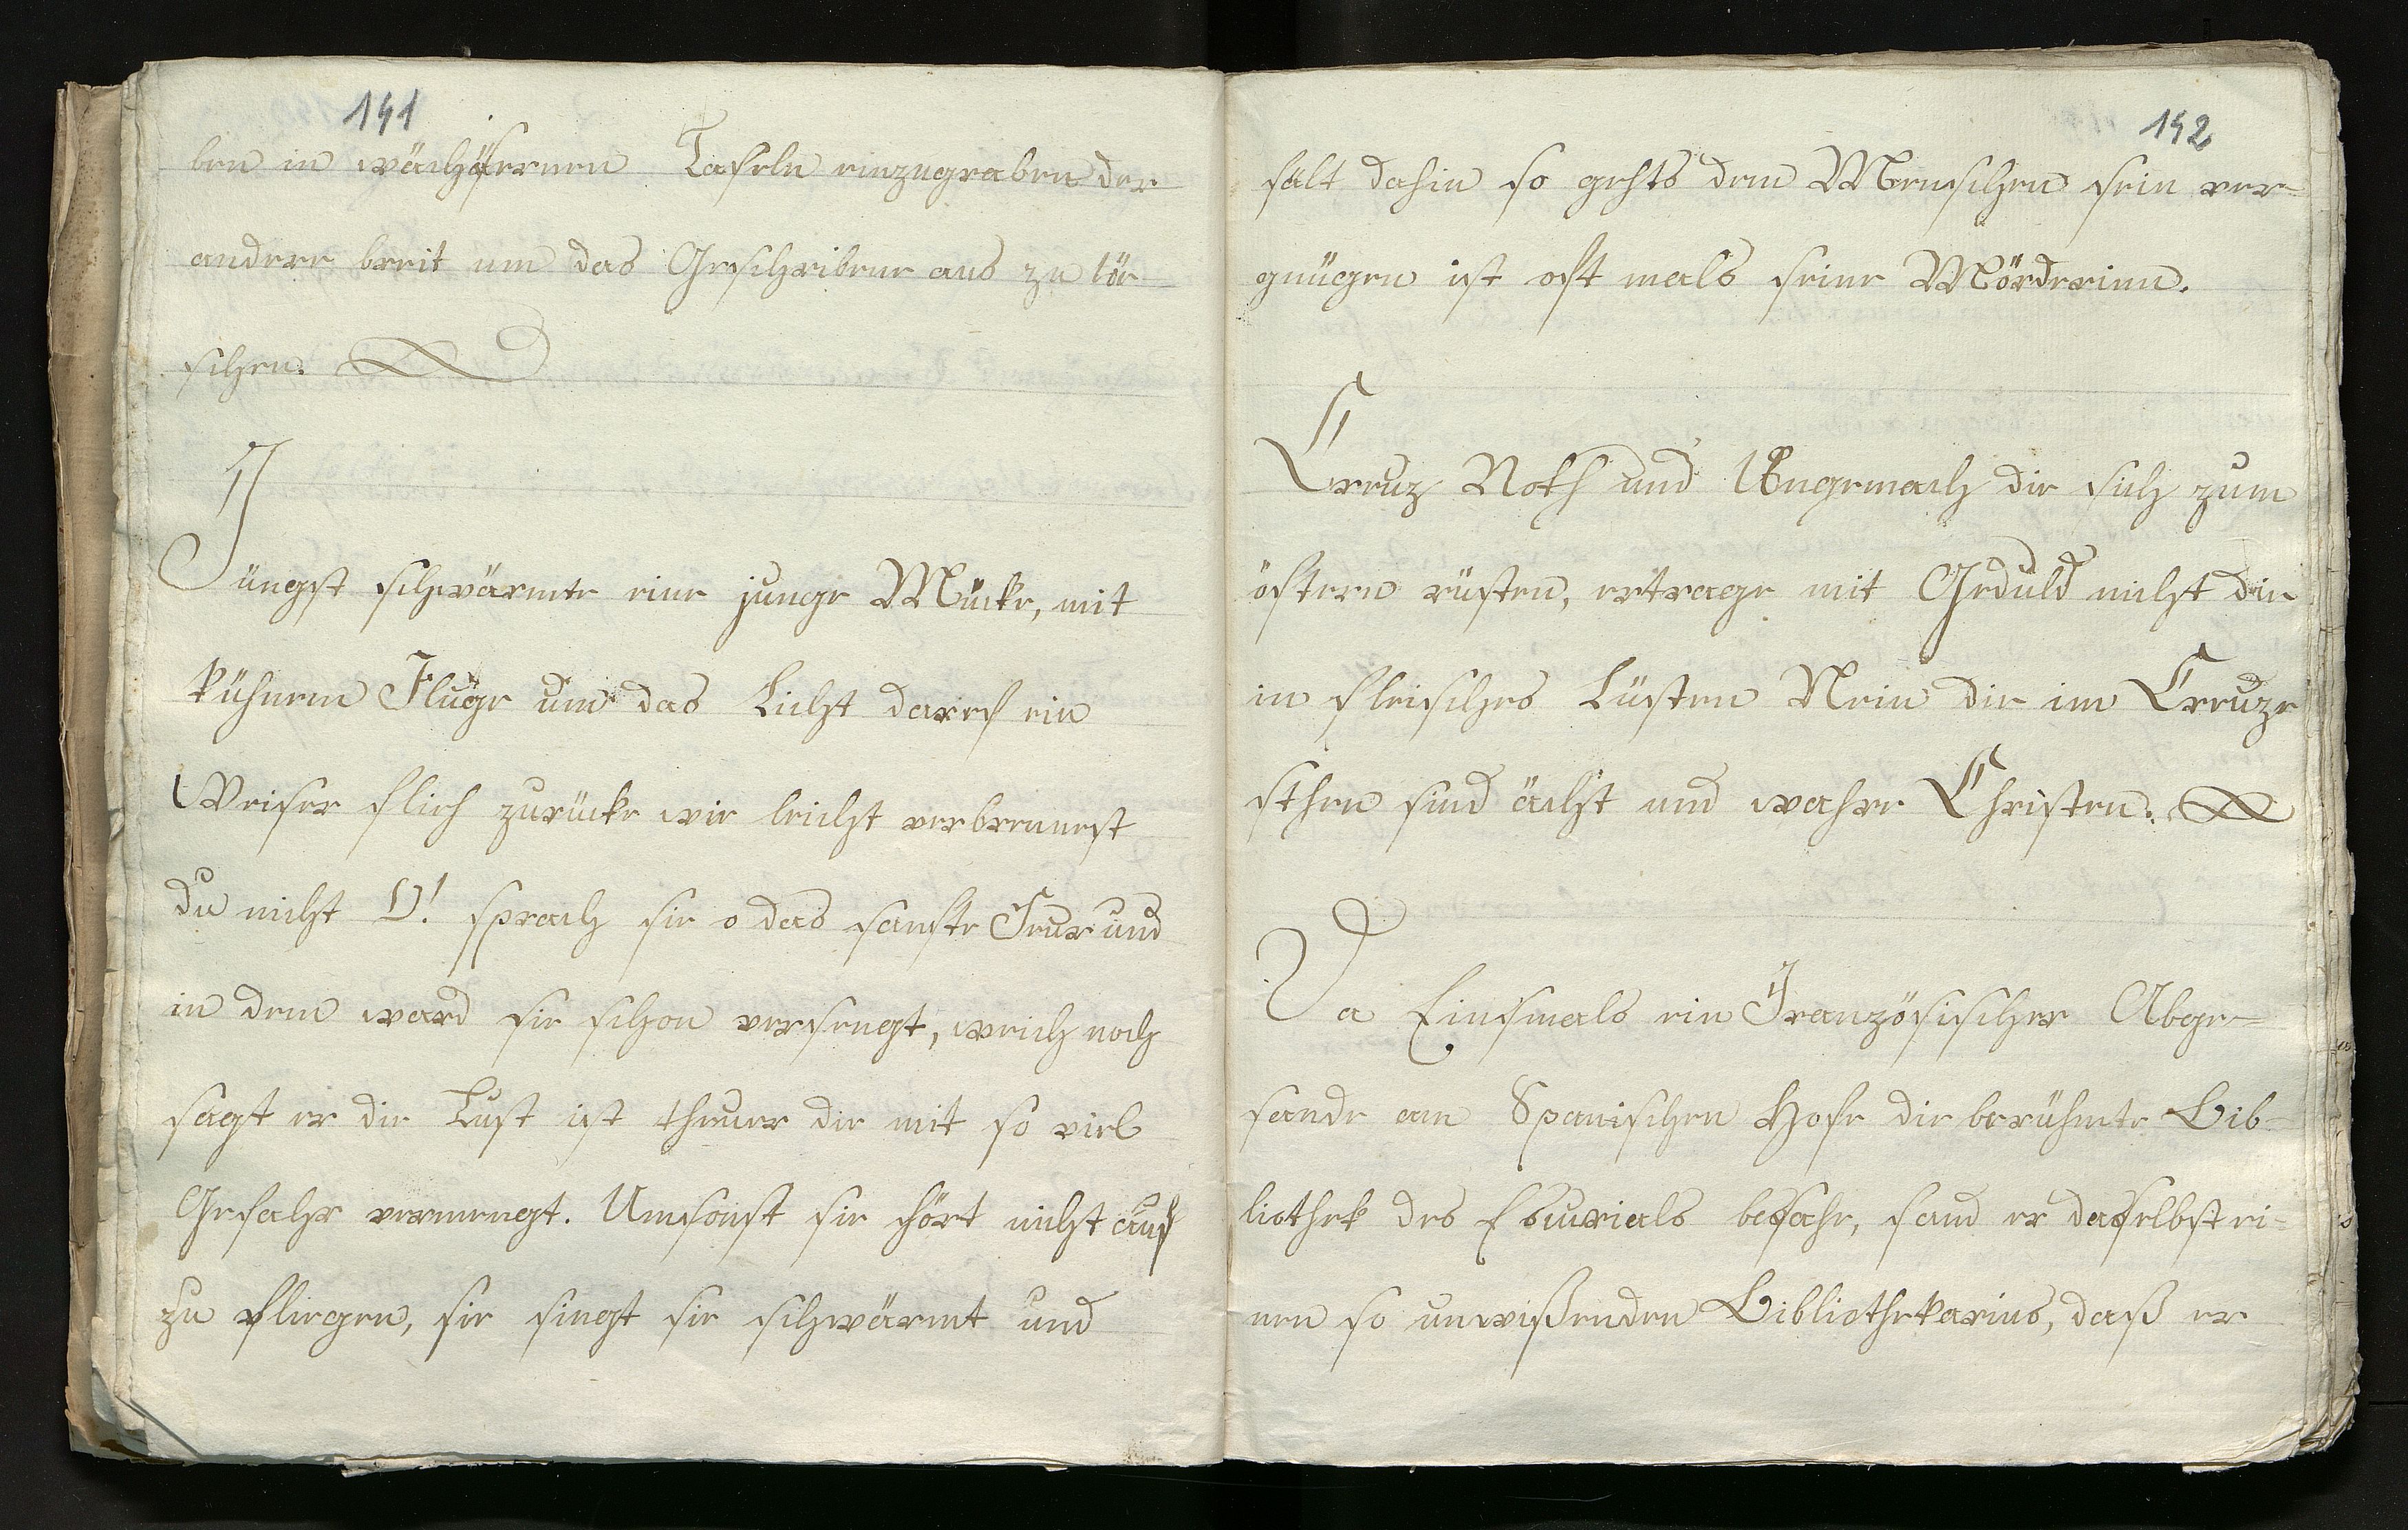 141
ben in wächsernen Tafeln einzugraben der
andere breit um das Geschribene aus zu lör
schen.
Jüngst schwärmte eine junge Mücke, mit
kühnem Fluge um das Licht darief ein
Weiser flieh zurücke wie leicht verbrennest
du nicht O! sprach sie o das sanfte Feur und
in dem ward sie schon versengt, weich noch
sagt er die Lust ist theuer die mit so viel
Gefahr vermengt. Umsonst sie hört nicht auf
zu fliegen, sie singt sie schwärmt und
142
fält dahin so gehts dem Menschen sein ver=
gnügen ist oft mals seine Mörderinn.
Creuz Noth und Ungemach die sich zum
öftern rüsten, ertrage mit Geduld nicht die
in fleisches Lüsten Nein die im Creuze
sthen sind ächt und wahre Christen.
Da Einsmals ein Französischer Abge=
sande am Spanischen Hofe die berühmte Bib=
liothek des Escurials besahe, fand er daselbst ei=
nen so unwißenden Bibliothekarius, daß er